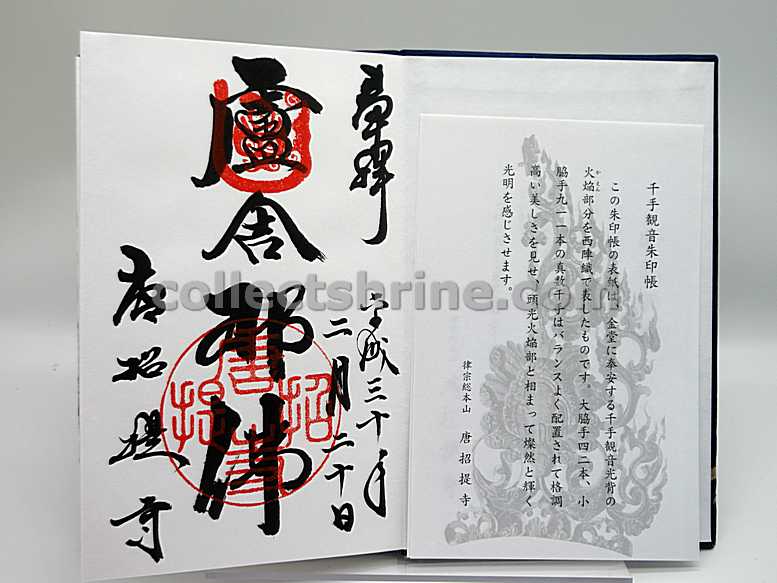 千手観音朱印帳
この朱印帳の表紙は、金堂に奉安する千手観音光背の
かえん
火焔部分を西陣織で表したものです。大脇手四二本、小
脇手九一一本の真数千手はバランスよく配置されて格調
高い美しさを見せ、頭光火焔部と相まって燦然と輝く
光明を感じさせます。
律宗総本山 唐招提寺
奉拝
平成三十年
二月二十日
盧舎那佛
唐招提寺
唐招提寺
collectshrine.com